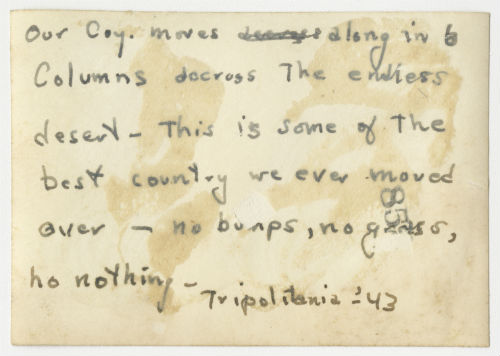 Our Coy. moves along in 6
Columns accross The endless
desert - This is some of The
best country we ever moved
over - no bumps, no grass,
no nothing -
Tripolitania - '43
85